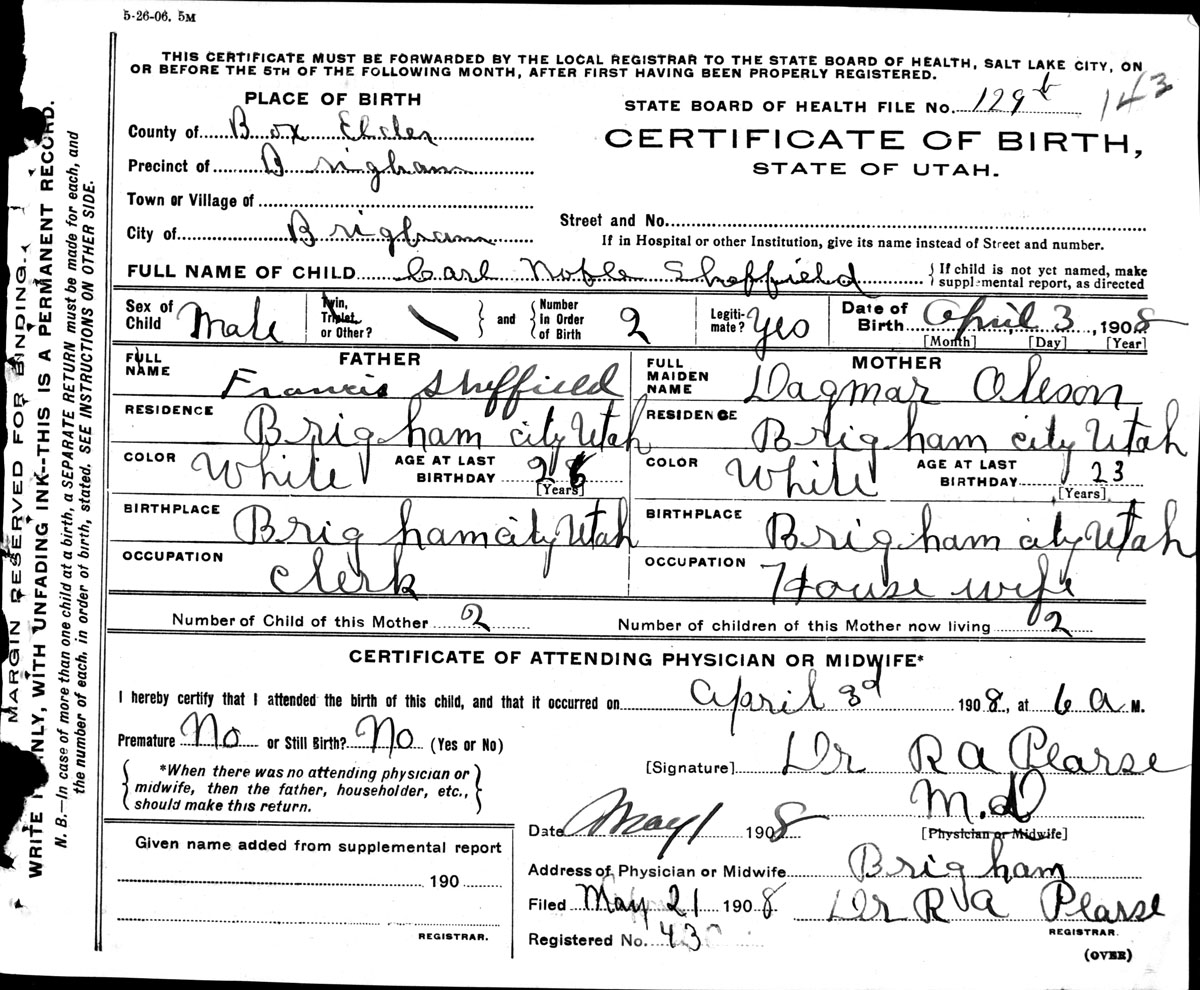 5-26-06. 5M
THIS CERTIFICATE MUST BE FORWARDED BY THE LOCAL REGISTRAR TO THE STATE BOARD OF HEALTH, SALT LAKE CITY, ON
OR BEFORE THE 5TH OF THE FOLLOWING MONTH, AFTER FIRST HAVING BEEN PROPERLY REGISTERED.
PLACE OF BIRTH
STATE BOARD OF HEALTH FILE No. 129 b 143
County of Box Elder
CERTIFICATE OF BIRTH,
Precinct of Brigham
STATE OF UTAH.
Town or Village of
Street and No.
City of Brigham
If in Hospital or other Institution, give its name instead of Street and number.
FULL NAME OF CHILD Carl Noble Sheffield
{ If child is not yet named, make
supplemental report, as directed
Sex of Child Male
Twin, Triplet, or Other? \
} and {
Number in Order of Birth 2
Legiti-mate? Yes
Date of Birth April 3, 1908
[Month] [Day] [Year]
FATHER
FULL NAME Francis Sheffield
RESIDENCE Brigham city Utah
COLOR White
AGE AT LAST BIRTHDAY 26
[Years]
BIRTHPLACE Brigham city Utah
OCCUPATION Clerk
MOTHER
FULL MAIDEN NAME Dagmar Oleson
RESIDENCE Brigham city Utah
COLOR White
AGE AT LAST BIRTHDAY 23
[Years]
BIRTHPLACE Brigham city Utah
OCCUPATION House wife
Number of Child of this Mother 2
Number of children of this Mother now living 2
CERTIFICATE OF ATTENDING PHYSICIAN OR MIDWIFE*
I hereby certify that I attended the birth of this child, and that it occurred on April 3d 1908, at 6 a M.
Premature No or Still Birth? No (Yes or No)
{ *When there was no attending physician or
midwife, then the father, householder, etc.,
should make this return. }
[Signature] Dr R A Pearse
M.d
[Physician or Midwife]
Date May 1 1908
Address of Physician or Midwife Brigham
Filed May 21 1908 Dr R A Pearse
REGISTRAR.
Registered No. 43
(OVER)
Given name added from supplemental report
190
REGISTRAR.
MARGIN RESERVED FOR BINDING.
WRITE PLAINLY, WITH UNFADING INK--THIS IS A PERMANENT RECORD.
N. B.—In case of more than one child at a birth, a SEPARATE RETURN must be made for each, and
the number of each, in order of birth, stated. SEE INSTRUCTIONS ON OTHER SIDE.